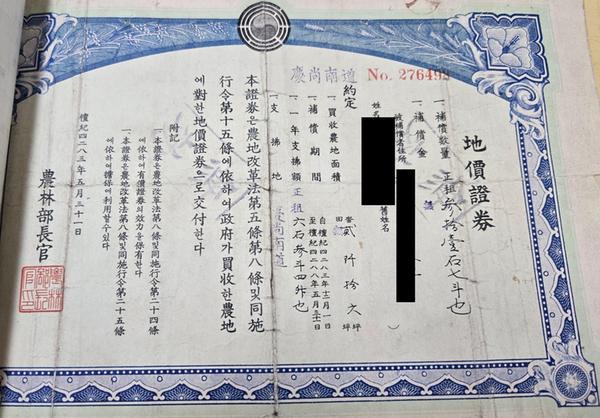 慶尚南道 No. 276492
地價證券
一、補償數量 正租參拾壹石七斗也
一、補償金
被補償者住所
姓名
舊姓名
約定
一、買收農地面積 畓 田 坪
一、補償期間 自檀紀四二八三年 月一日 至檀紀四二八八年五月三十一日
一、一年支拂額 正租六石參斗四升也
一、支拂地 慶尚南道
本證券은農地改革法第五條第八條및同施
行令第十五條에依하여政府가買收한農地
에對한地價證券으로交付한다
附記
一、本證券은農地改革法第八條및同施行令第二十四條
에依하여有價證券의效力을保有한다
一、本證券은農地改革法第八條및同施行令第二十五條
에依하여擔保에利用할수있다
檀紀四二八三年五月三十一日
農林部長官